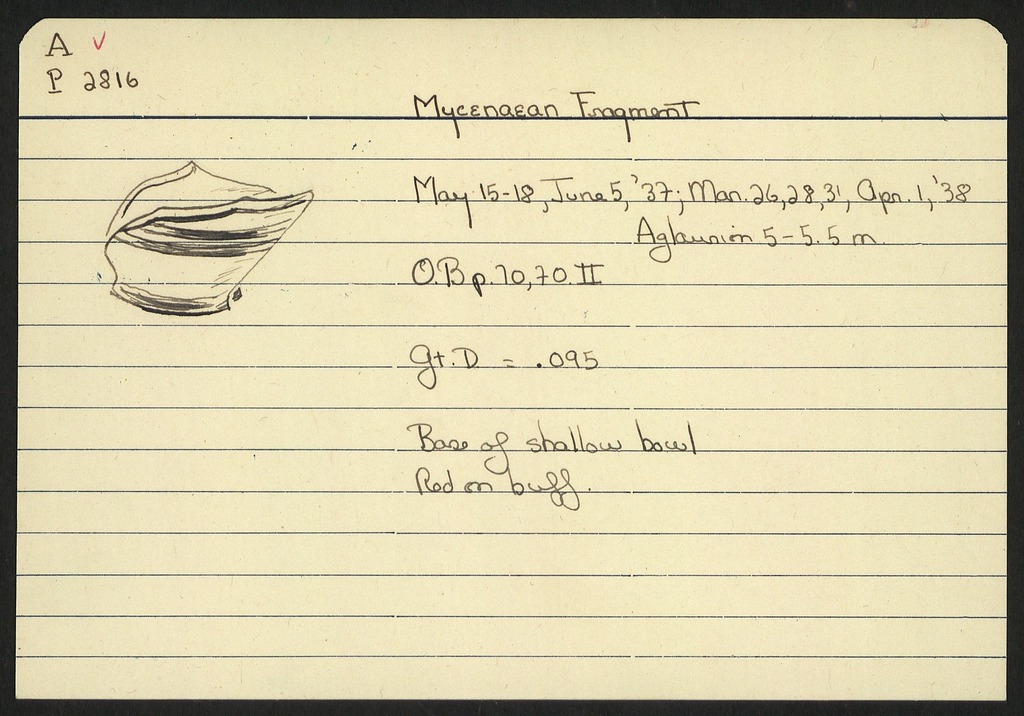 A ✓
P 2816
Mycenaean Fragment
May 15-18, June 5, '37; Mar. 26, 28, 31, Apr. 1, '38
Aglaurion 5-5.5 m.
O.B p. 70, 70 II
Gt. D = .095
Base of shallow bowl
Red on buff.